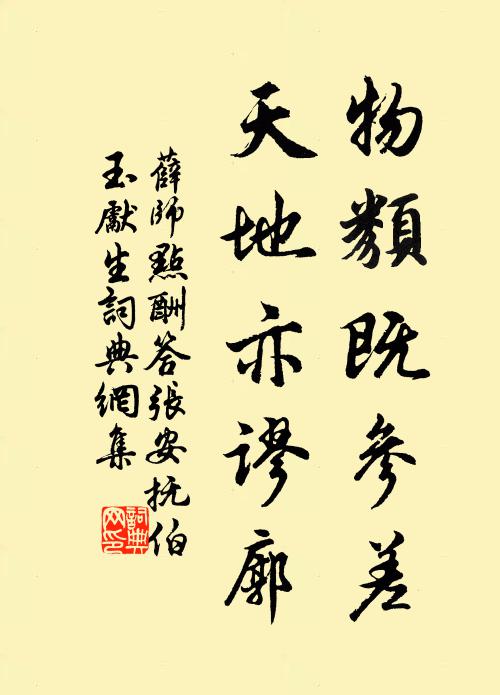 物類既參差
天地亦謬廓
薛師點酬答張安抚伯
玉獻生詞典網集
詞典网印